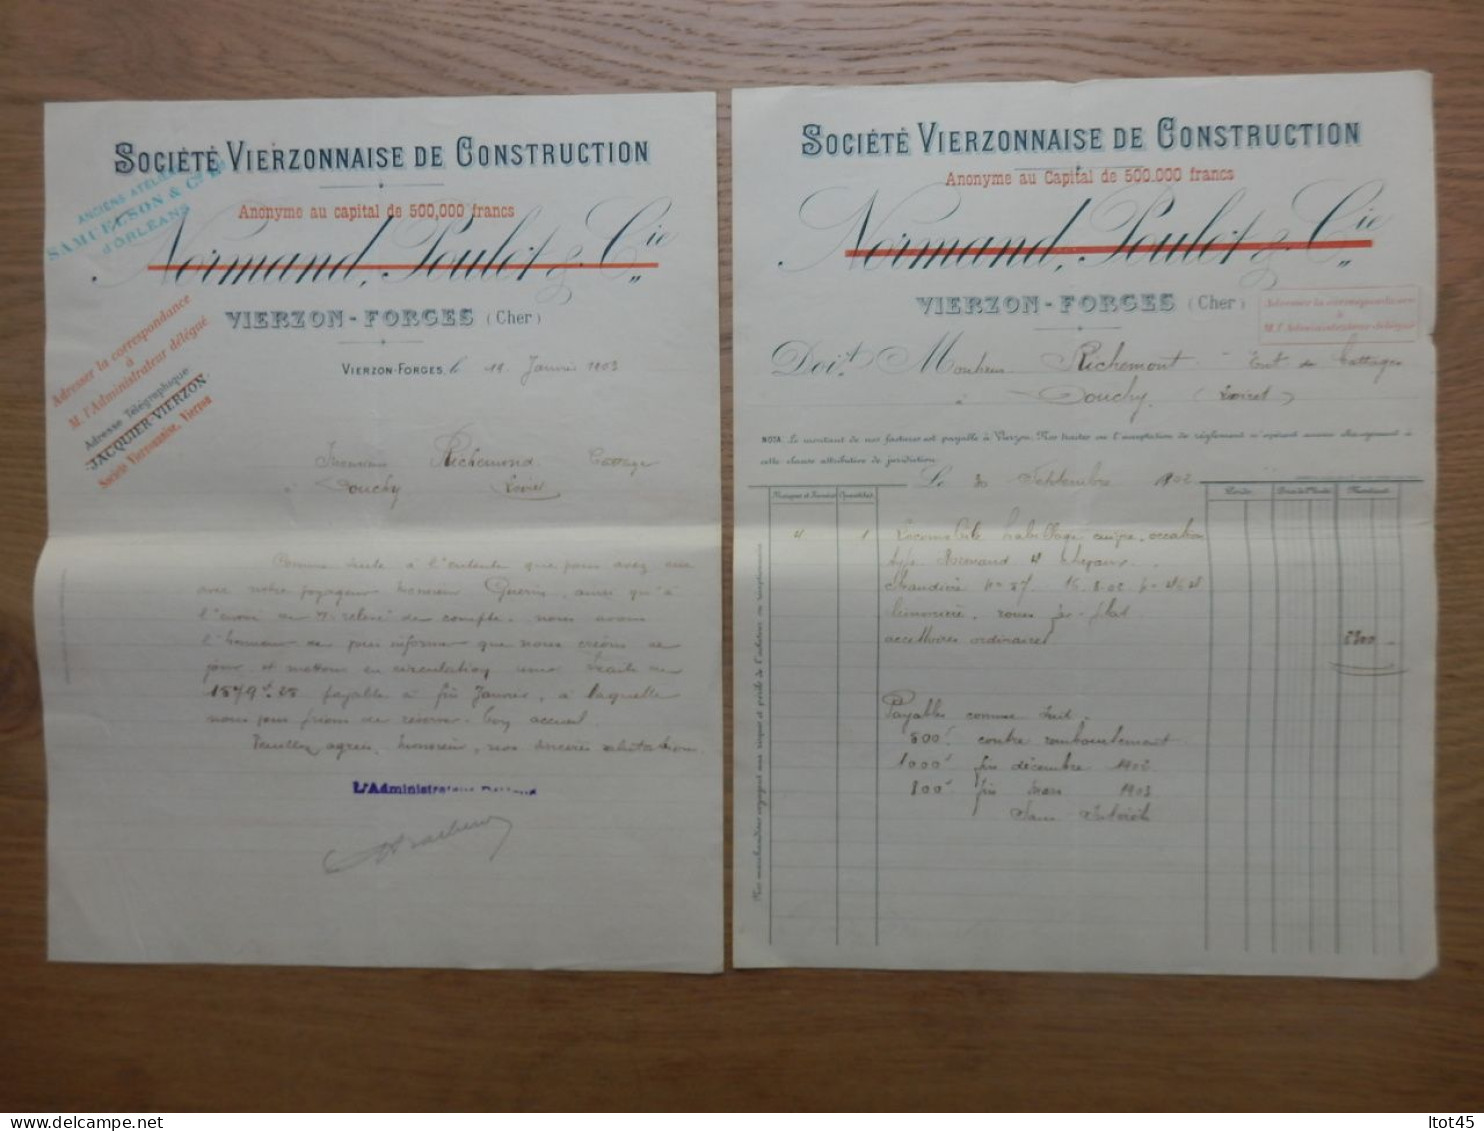 SOCIÉTÉ VIERZONNAISE DE CONSTRUCTION
ANCIENS ATELIERS
SAMUELSON & Cº
D'ORLÉANS
Anonyme au capital de 500,000 francs
Normand, Poulet & Cie
VIERZON - FORGES (Cher)
Adresser la correspondance
à
M. l'Administrateur délégué
Adresse Télégraphique
JACQUIER-VIERZON
Société Vierzonnaise, Vierzon
VIERZON-FORGES, le Janvier 1903
Monsieur Richemond Cottage
à Douchy Loiret
Comme suite à l'entente que vous avez eue
avec notre voyageur Monsieur Guerin, ainsi qu'à
l'envoi de relevé de compte, nous avons
l'honneur de vous informer que nous créons ce
jour et mettons en circulation une traite de
1879f.28 payable à fin Janvier, à laquelle
nous vous prions de réserver bon accueil.
Veuillez agréer, Monsieur, nos sincères salutations
L'Administrateur Délégué
SOCIÉTÉ VIERZONNAISE DE CONSTRUCTION
Anonyme au Capital de 500.000 francs
Normand, Poulet & Cie
VIERZON - FORGES (Cher)
Adresser la correspondance
à
M. l'Administrateur délégué
Doit Monsieur Richemont Ent de battages
à Douchy (Loiret)
NOTA. Le montant de nos factures est payable à Vierzon. Nos traites ou l'acceptation de règlement n'opèrent aucun changement à
cette clause attributive de juridiction.
Le 30 Septembre 1902
Marques et Numéros Quantités Poids Montant
4 1 Locomobile habillage cuivre, occasion
type Normand 4 chevaux
limonière, roues
accessoires ordinaires
Payables comme suit.
800f contre remboursement
1000f fin décembre 1902
800f fin mars 1903
Sans Intérêt
Nos marchandises voyagent aux risques et périls de l'acheteur ou réceptionnaire
ltot45